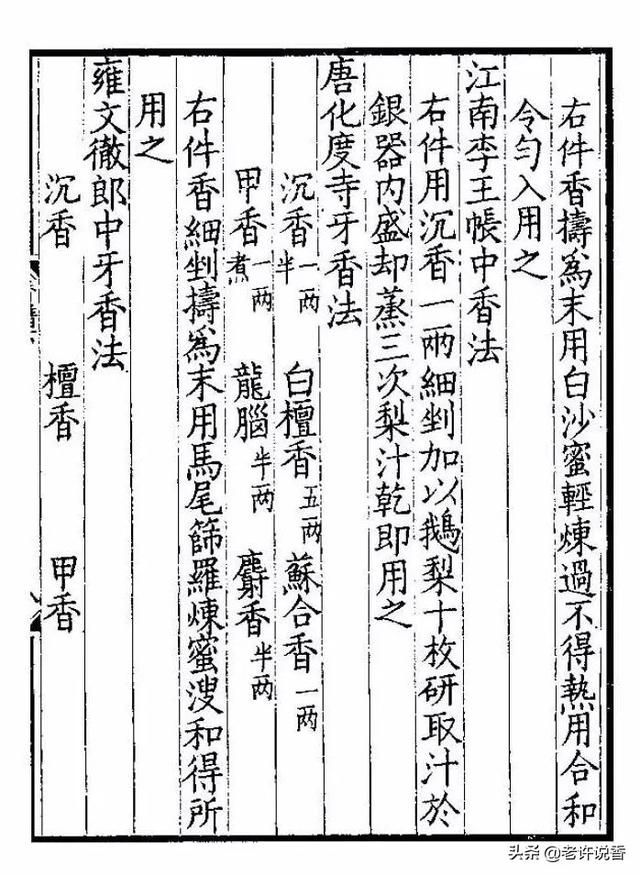 右件香擣爲末用白沙蜜輕煉過不得熱用合和
令勻入用之
江南李王帳中香法
右件用沉香一兩細剉加以鵝梨十枚研取汁於
銀器内盛却蒸三次梨汁乾即用之
唐化度寺牙香法
沉香一两半 白檀香五两 蘇合香一两
甲香一两煮 龍腦半两 麝香半两
右件香細剉擣為末用馬尾篩羅煉蜜溲和得所
用之
雍文徹郎中牙香法
沉香 檀香 甲香
头条 @老许说香